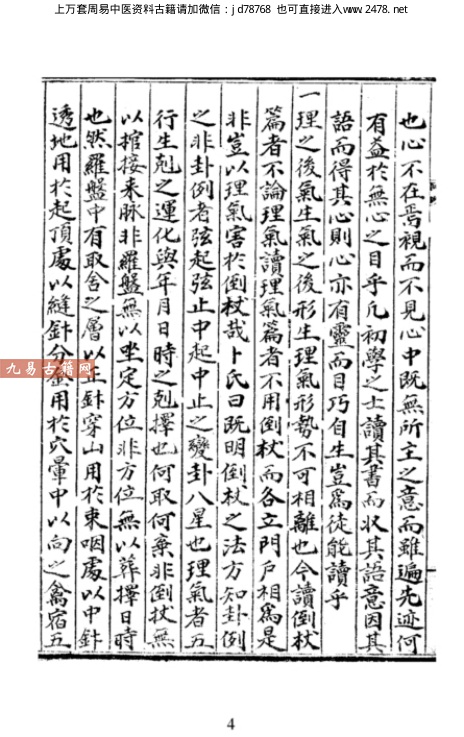 上万套周易中医资料古籍请加微信：jd78768 也可直接进入www.2478.net
也心不在焉視而不見心中既無所主之意而雖遍先迹何
有益於無心之目乎凡初學之士讀其書而求其語意因其
語而得其心則心亦有靈而目巧自生豈爲徒能讀乎
一理之後氣生氣之後形生理氣形勢不可相離也今讀倒杖
篇者不論理氣讀理氣篇者不用倒杖而各立門戶相爲是
非豈以理氣害於倒杖哉卜氏曰既明倒杖之法方知卦例
之非卦倒者弦起弦止中起中止之變卦八星也理氣者五
行生剋之運化與年月日時之剋擇也何取何棄非倒杖無
以棺接來脉非羅盤無以坐定方位非方位無以葬擇日時
也然羅盤中有取舍之層以正針穿山用於束咽處以中針
透地用於起頂處以縫針分金用於穴暈中以向之禽宿五
九易古籍网
4